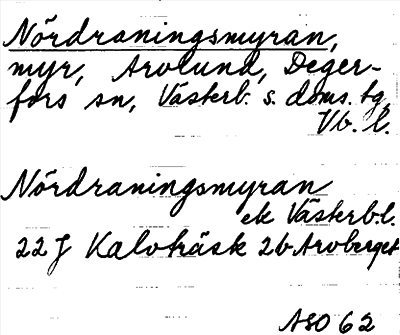 Nördraningsmyran,
myr, Avolund, Deger-
fors sn, Västerb. s. doms. tg,
Vb. l.
Nördraningsmyran
ek Västerb.l.
22 J Kalvträsk 2b Avaberget
ASO 62